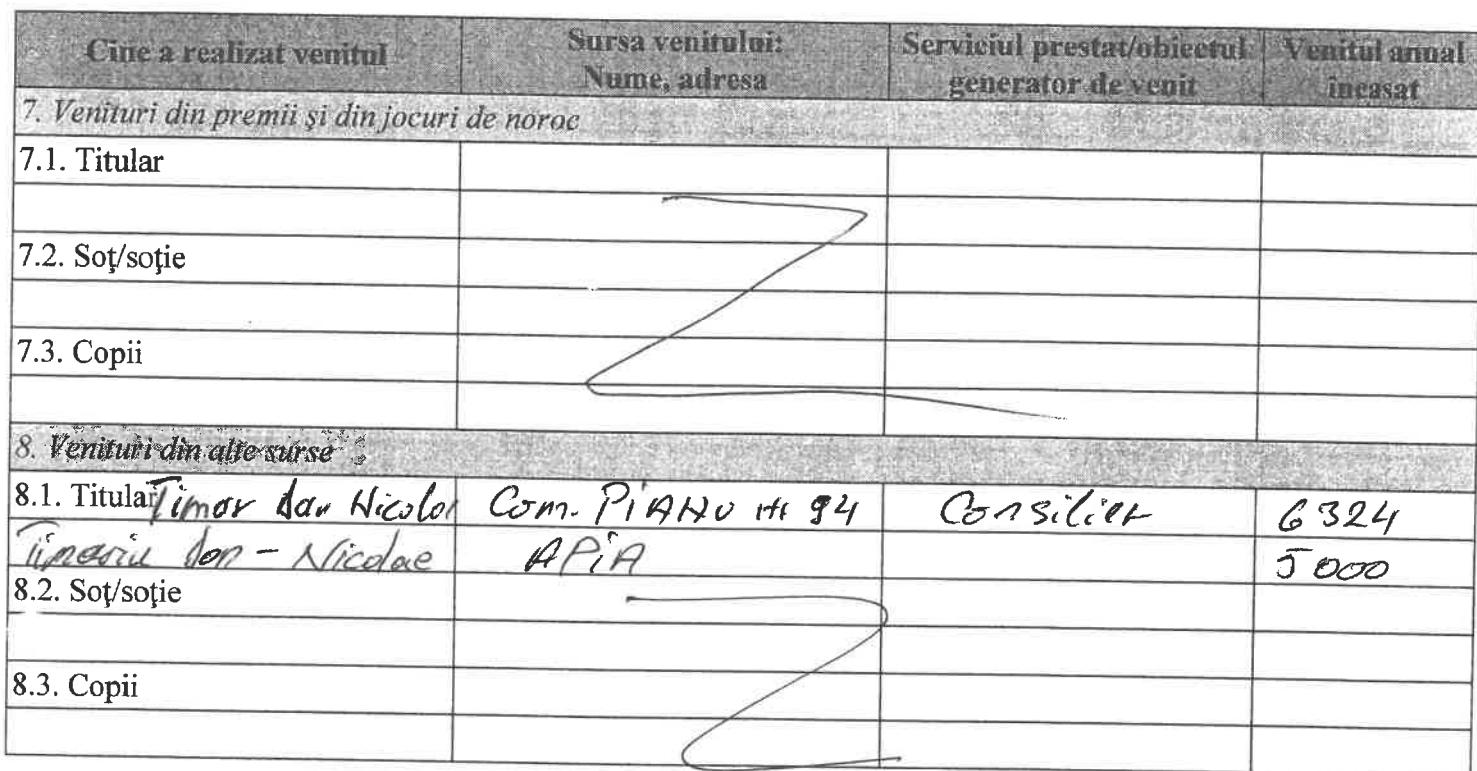 Cine a realizat venitul | Sursa venitului: Nume, adresa | Serviciul prestat/obiectul generator de venit | Venitul anual încasat
7. Venituri din premii şi din jocuri de noroc
7.1. Titular
7.2. Soţ/soţie
7.3. Copii
8. Venituri din alte surse
8.1. Titular Timar dan Nicolo | Com. PiANu nr 94 | Consilier | 6324
- Nicolae | APiA | 5000
8.2. Soţ/soţie
8.3. Copii